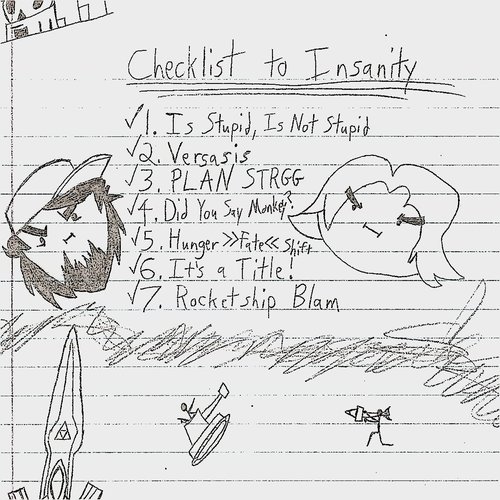 Checklist to Insanity
✓1. Is Stupid, Is Not Stupid
✓2. Versasis
✓3. PLAN STRGG
✓4. Did You Say Monkey?
✓5. Hunger >>Fate<< Shift
✓6. It's a Title!
✓7. Rocketship Blam